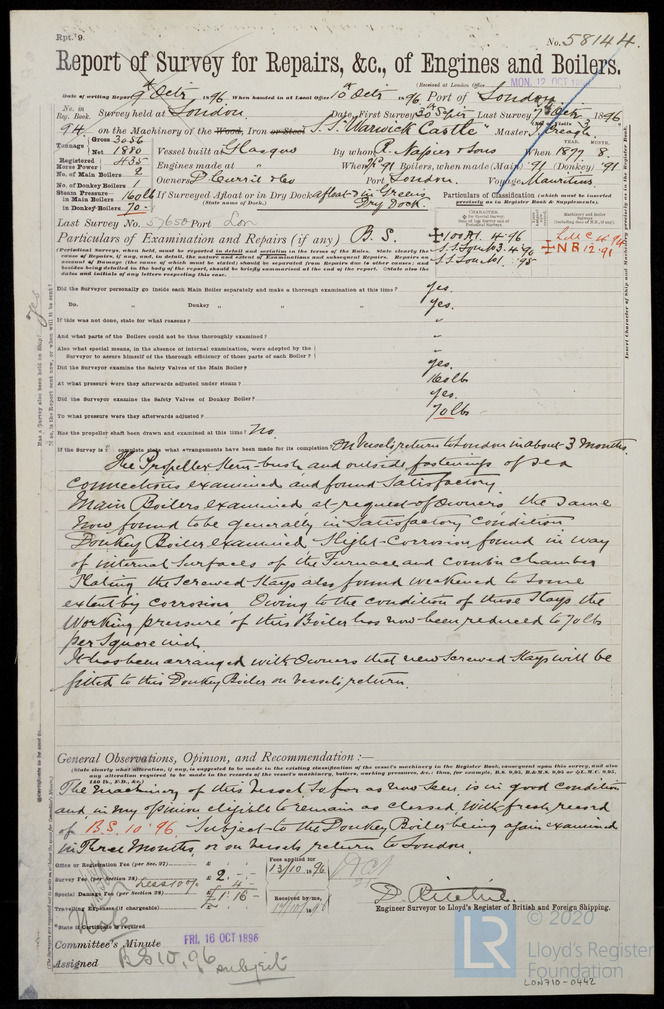 Rpt. 9.
No. 58144.
Report of Survey for Repairs, &c., of Engines and Boilers.
(Received at London Office MON. 12 OCT 1896
Date of writing Report 9th Octr 1896 When handed in at Local Office 10th Octr 1896 Port of London
No. in Reg. Book. Survey held at London Date, First Survey 30 Last Survey 7th Octr 1896
94 on the Machinery of the Wood, Iron or Steel S.S. "Warwick Castle" Master
Tonnage Gross 3056 Net 1880
Vessel built at Glasgow By whom R. Napier & Sons When 1877 8
Registered Horse Power 435
Engines made at " By whom " When 91 Boilers, when made (Main) 91 (Donkey) 91
No. of Main Boilers 2
Owners D. Currie & Co Port London Voyage Mauritius
No. of Donkey Boilers 1
Steam Pressure in Main Boilers 160 lb
in Donkey Boilers 70
If Surveyed Afloat or in Dry Dock afloat & in Green's Dry Dock.
(State name of Dock.)
Particulars of Classification (which must be inserted precisely as in Register Book & Supplements).
Last Survey No. 57650 Port Lon
Particulars of Examination and Repairs (if any) B. S.
100A1. 4.96
N B 12.91
Did the Surveyor personally go inside each Main Boiler separately and make a thorough examination at this time? yes.
Do. " Donkey " " " yes.
If this was not done, state for what reasons? "
And what parts of the Boilers could not be thus thoroughly examined? "
Also what special means, in the absence of internal examination, were adopted by the Surveyor to assure himself of the thorough efficiency of those parts of each Boiler? "
Did the Surveyor examine the Safety Valves of the Main Boiler? yes.
At what pressure were they afterwards adjusted under steam? 160 lb
Did the Surveyor examine the Safety Valves of Donkey Boiler? yes.
To what pressure were they afterwards adjusted? 70 lb
Has the propeller shaft been drawn and examined at this time? No.
If the Survey is complete state what arrangements have been made for its completion On Vessel's return to London in about 3 months.
The Propeller Stern-bush and outside fastenings of sea
connections examined and found Satisfactory
Main Boilers examined at request of Owners the Same
now found to be generally in Satisfactory condition
Donkey Boiler examined Slight Corrosion found in way
of internal Surfaces of the Furnace and combn chamber
Plating the Screwed Stays also found weakened to some
extent by corrosion. Owing to the condition of these Stays the
Working pressure of this Boiler has now been reduced to 70 lb
per Square inch.
It has been arranged with Owners that new Screwed Stays will be
fitted to this Donkey Boiler on Vessel's return.
General Observations, Opinion, and Recommendation:—
The Machinery of this Vessel So far as now Seen is in good condition
and in my opinion eligible to remain as classed with fresh record
of B.S. 10.96. Subject to the Donkey Boiler being again examined
in Three Months, or on Vessel's return to London.
Office or Registration Fee (per Sec. 27) £
Survey Fee (per Section 28) £ 2. -. -
Less 10%
Special Damage Fee (per Section 28) £ 1. 16 -
Travelling Expenses (if chargeable) £
Fees applied for 13/10 1896
Received by me,
D. Ritchie.
Engineer Surveyor to Lloyd's Register of British and Foreign Shipping.
*State if Certificate is required
Committee's Minute FRI. 16 OCT 1896
Assigned BS 10,96 subject
LR
© 2020
Lloyd's Register
Foundation
LON710-0442